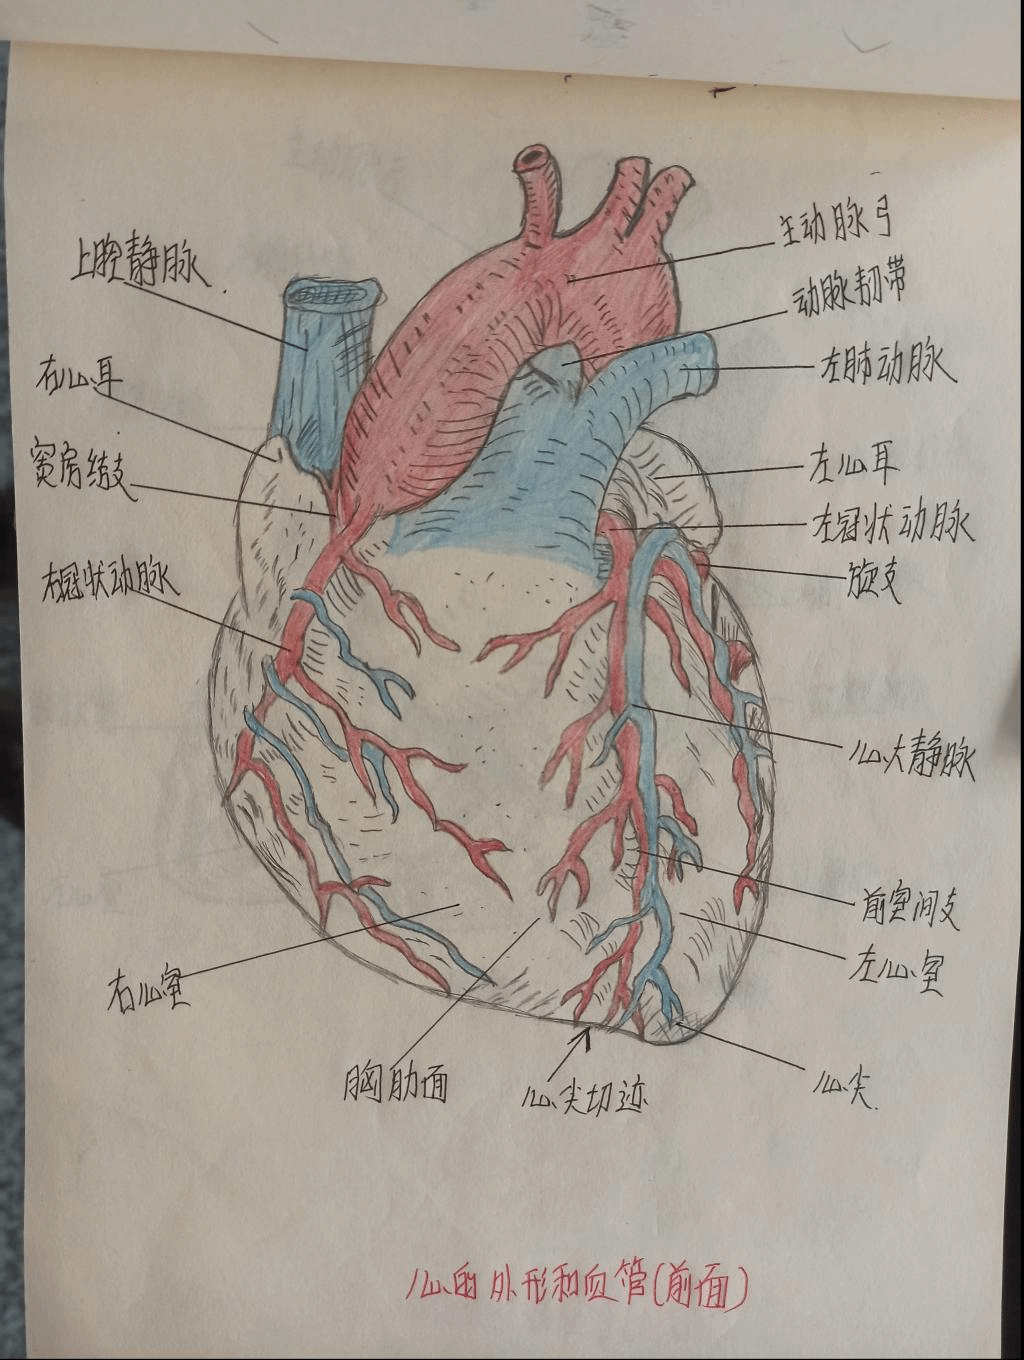 上腔静脉
右心耳
窦房结支
右冠状动脉
右心室
胸肋面
心尖切迹
主动脉弓
动脉韧带
左肺动脉
左心耳
左冠状动脉
旋支
心大静脉
前室间支
左心室
心尖
心的外形和血管(前面)